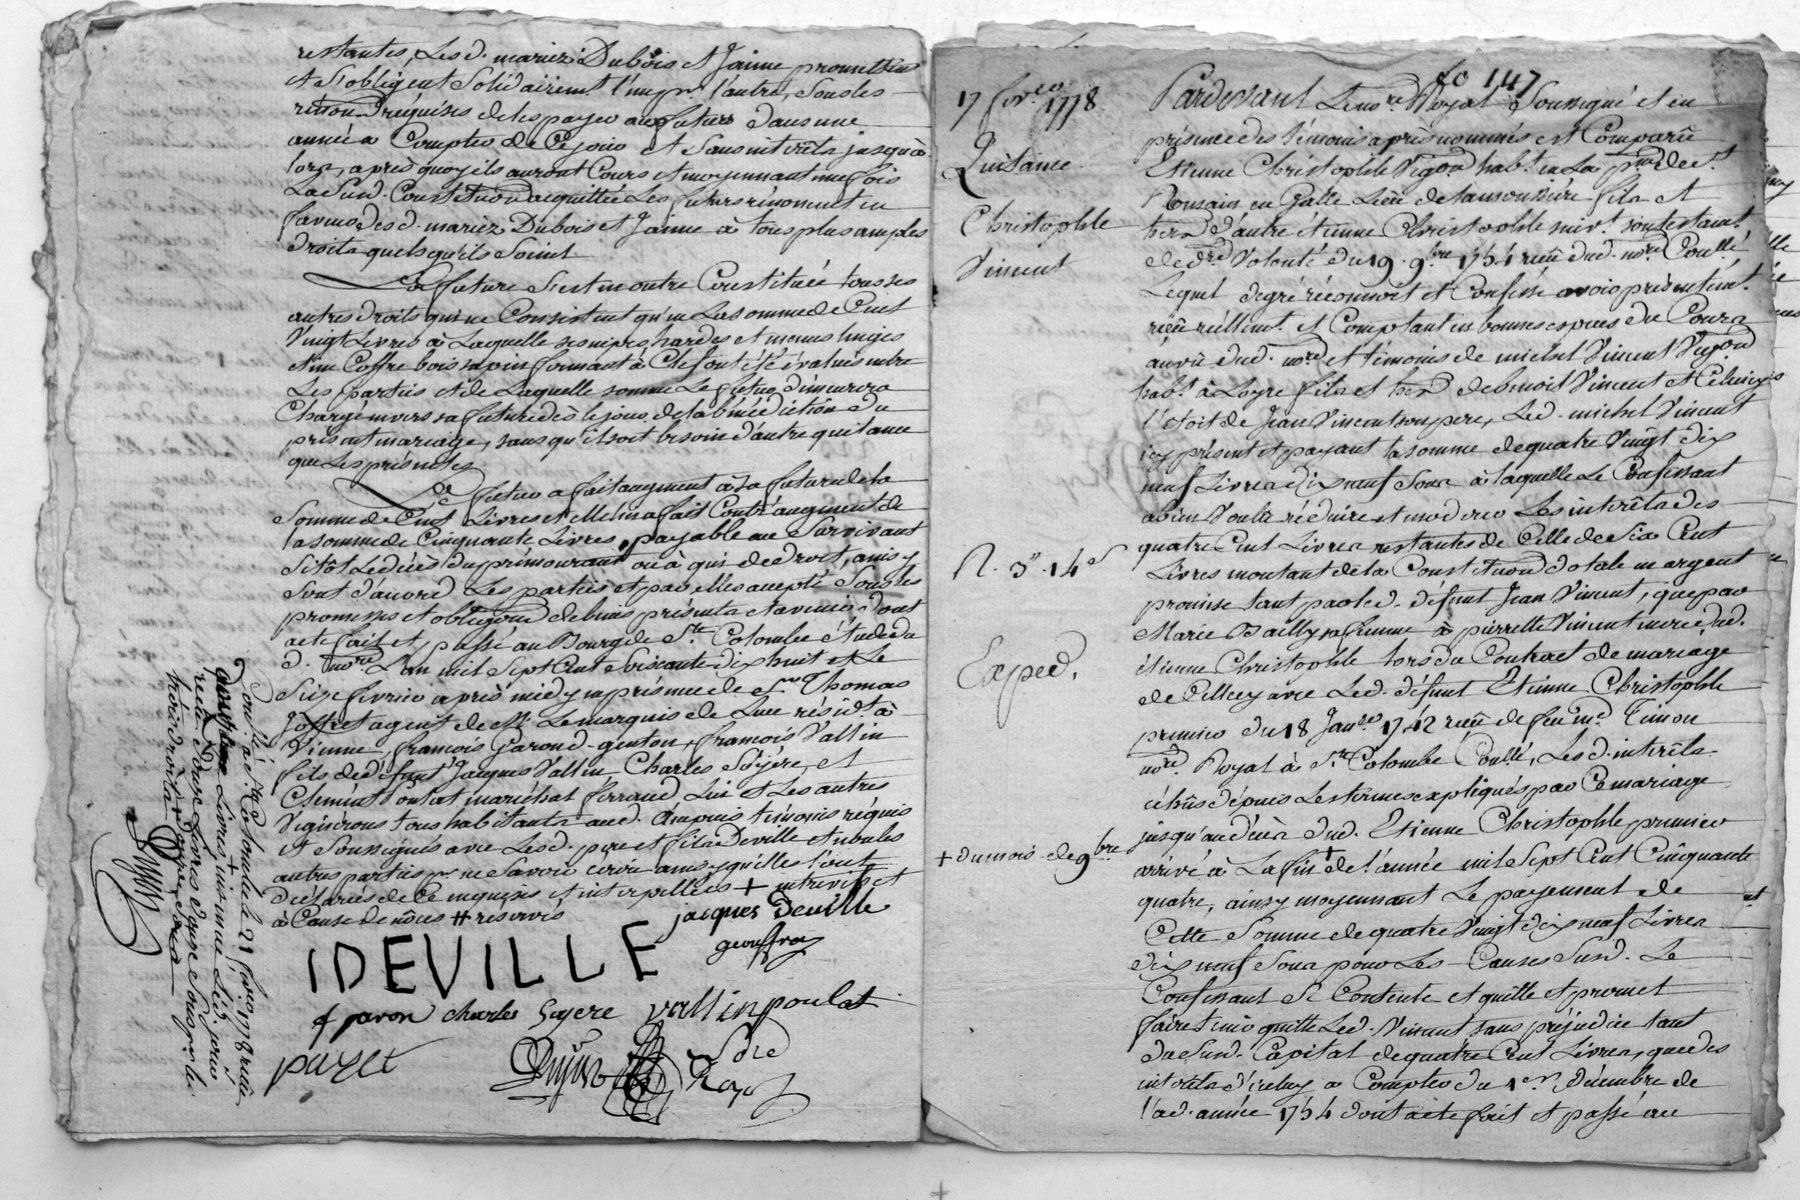 restantes, Lesd. mariéz Dubois et Jaime promettent
et s'obligent solidairement l'un pr. l'autre, sous les
renon.on réquises de les payer aux futurs dans une
année a Compter de Ce jour et sans intérêts jusqu'à
lors, après quoy ils auront Cours et moyennant une fois
La Susd. Constitution acquittée Les futurs rénoncent en
faveur desd. mariéz Dubois et Jaime à tous plus amples
droits quelsqu'ils Soient
La future s'est en outre Constituée tous ses
autres droits qui ne Consistent qu'en La somme de Cent
Vingt Livres à Laquelle ses nipes, hardes et menus linges
et un Coffre bois sapin fermant à Clef ont été évalués entre
Les parties et de Laquelle somme Le futur demeurera
Chargé envers sa future dès le jour de la bénédiction du
présent mariage, sans qu'il soit besoin d'autre quitance
que Les présentes
Led. futur a fait augment à sa future de la
Somme de Cent Livres et elle lui a fait Contr'augment de
la somme de Cinquante Livres, payable au Survivant
sitôt Le décès du prémourant ou à qui de droit, ainsy
sont d'accord Les parties et par elles accepté sous les
promesses et obligaons de leurs présents et avenir dont
acte fait et passé au Bourg de Ste. Colombe étude du
d. nore. L'an mil Sept Cent Soixante dix huit et Le
Seize févrieo après midy en présence de Sr. Thomas
Joffret agent de Mr. Le marquis de Luc résidt. à
Vienne, francois Garon d. genton, francois Vallin
fils de défunt Jacques Vallin Charles Séyère, et
Clemént Poulat maréchal ferrand, Lui et Les autres
Vignerons tous habitants aud. Ampuis témoins réquis
et Soussignés avec Lesd. pere et fils Deville et nubles
autres parties pr. ne savoir écrire ainsy qu'elles l'ont
déclarées de Ce enquises et interpellées + entrevifs et
à Cause de nôces # reservis
jacques deville
geouffray
IDEVILLE
f garon charles Seyere vallin poulat
payet
Dujas
Nore
Royal
Conllé à Ste. Colombe le 21 févrieo 1778 reçu
Livres + interlinée Lesd. jour
recu Douze Livres douze sous pr. le
trois droits
17 fevrieo 1778
Quitance
Christophle
Vincent
R. 3lt. 14s
Exped.
+ du mois de 9bre
fo 147
Pardevant Le nore. Royal Soussigné et en
présence des témoins après nommés est Comparu
Etienne Christophle Vigon habt. en La pse. de St.
Romain en Galle Lieu de lamoussiere fils et
hérr. d'autre étienne Christophle suivt. son testamt.
de dre. volonté du 19. 9bre 1754 reçu dud. nore. Conllé,
Lequel de gré réconnoit et Confesse avoir présentemt.
reçu réellemt. et Comptant en bonnes espèces du Cours
au vû dud. nore. et témoins de michel Vincent Vigon
habt. à Loire fils et hér. de benoit Vincent et Celui cy
l'étoit de Jean Vincent son pere, Led. michel Vincent
icy présent et payant la somme de quatre Vingt dix
neuf Livres dix neuf Sous à laquelle Le Confessant
a bien Voulu réduire et moderer Les intérêts des
quatre Cent Livres restantes de Celle de Six Cent
Livres montant de la Constitution dotale en argent
promise tant par led. défunt Jean Vincent, que par
Marie Bailly sa femme à pierrette Vincent mere dud.
étienne Christophle lors du Contract de mariage
de Celle cy avec Led. défunt Etienne Christophle
premier du 18 Janer 1742 reçu de feu me. Timon
nore. Royal à Ste Colombe Conllé, Lesd. intérêts
échûs dépuis Les termes expliqués par Ce mariage
jusqu'au décès dud. Etienne Christophle premier
arrivé à La fin + de l'année mil Sept Cent Cinquante
quatre, ainsy moyennant Le payement de
Cette Somme de quatre Vingt dix neuf Livres
dix neuf Sous pour Les Causes Susd. Le
Confessant Se Contente et quitte et promet
faire tenir quitte Led. Vincent sans préjudice tant
du Susd. Capital de quatre Cent Livres, que des
intérêts d'icelui a Compter du 1er. Décembre de
l'ad. année 1754 dont acte fait et passé au